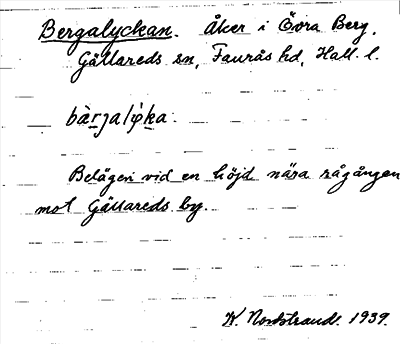 Bergalyckan. Åker i Övra Berg,
Gällareds sn, Faurås hd, Hall. l.
bàrjalýka.
Belägen vid en höjd nära rågången
mot Gällareds by.
K. Nordstrand. 1939.